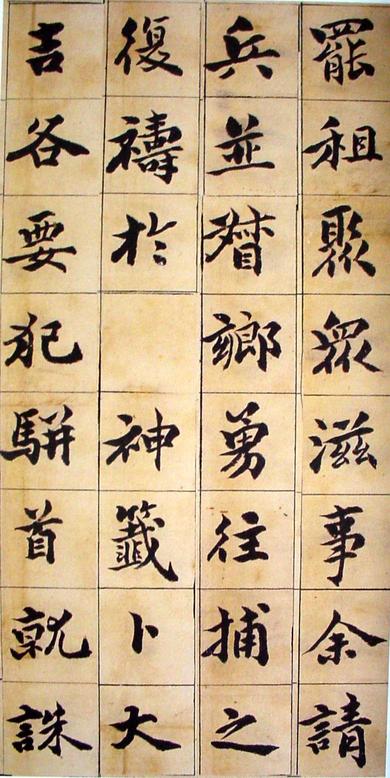 罷租聚衆滋事余請
兵並督鄉勇往捕之
復禱於 神籤卜大
吉各要犯駢首就誅